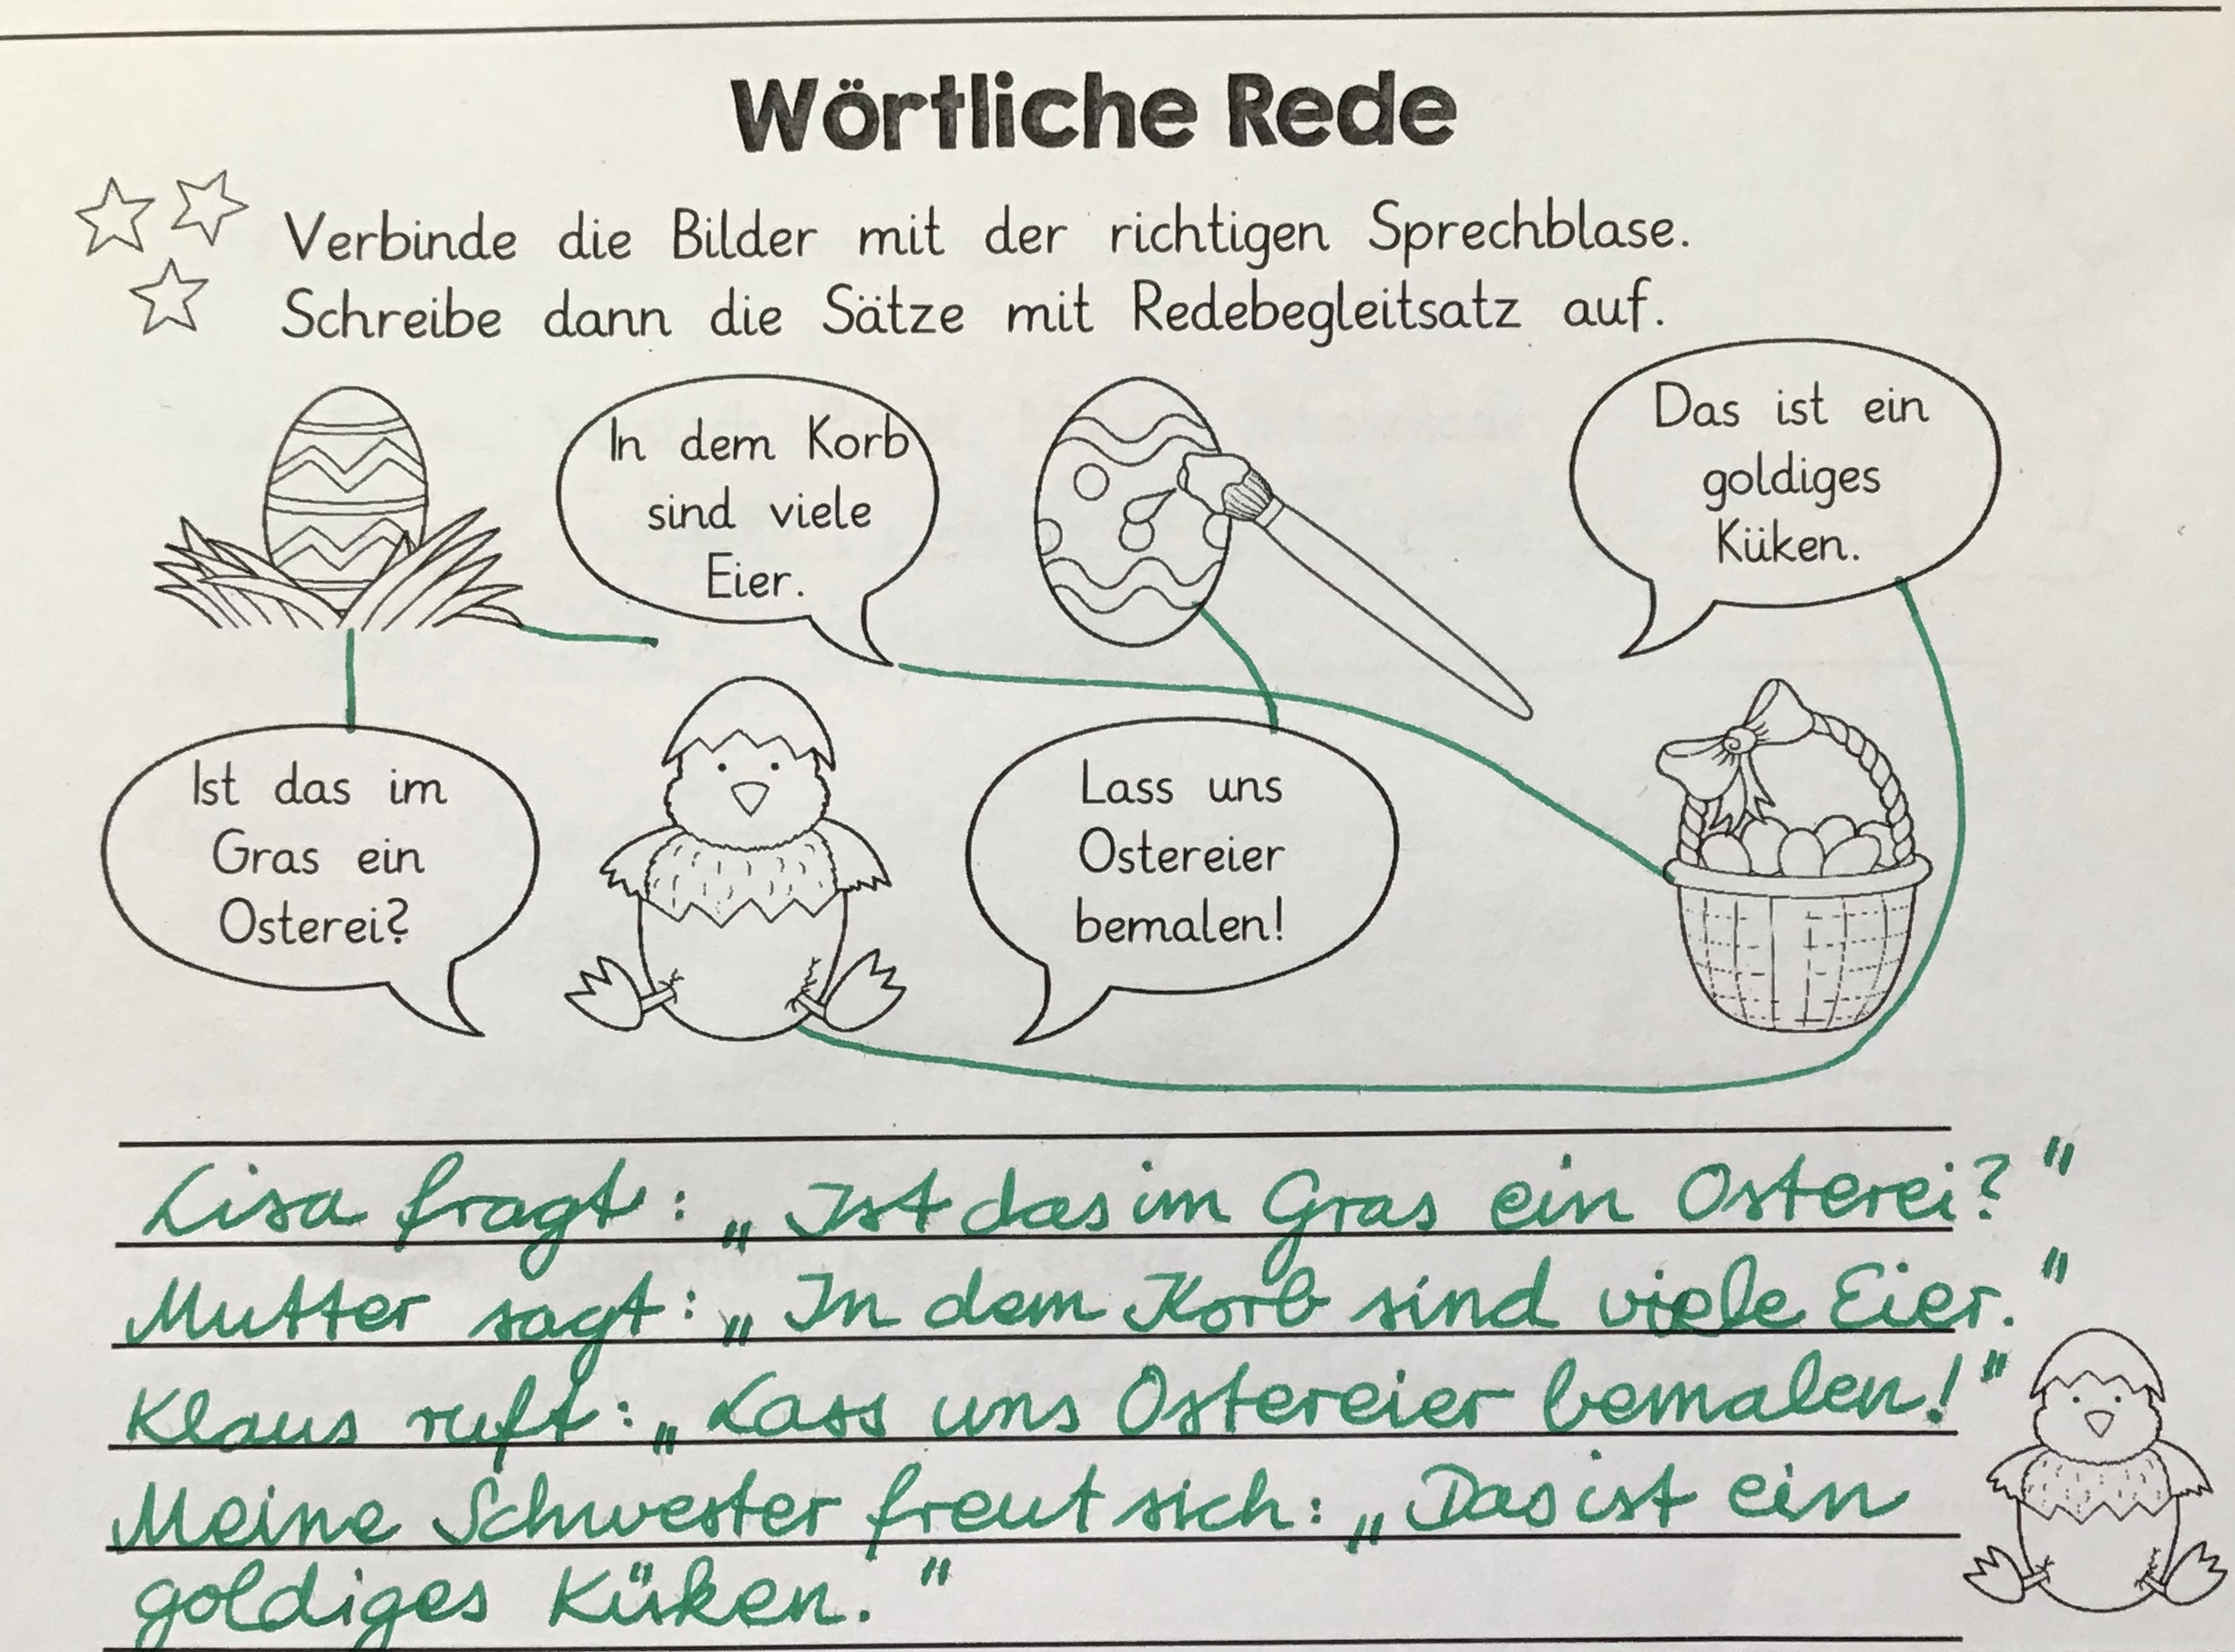 Wörtliche Rede
Verbinde die Bilder mit der richtigen Sprechblase.
Schreibe dann die Sätze mit Redebegleitsatz auf.
In dem Korb
sind viele
Eier.
Das ist ein
goldiges
Küken.
Ist das im
Gras ein
Osterei?
Lass uns
Ostereier
bemalen!
Lisa fragt: „Ist das im Gras ein Osterei?"
Mutter sagt: „In dem Korb sind viele Eier."
Klaus ruft: „Lass uns Ostereier bemalen!"
Meine Schwester freut sich: „Das ist ein
goldiges Küken."